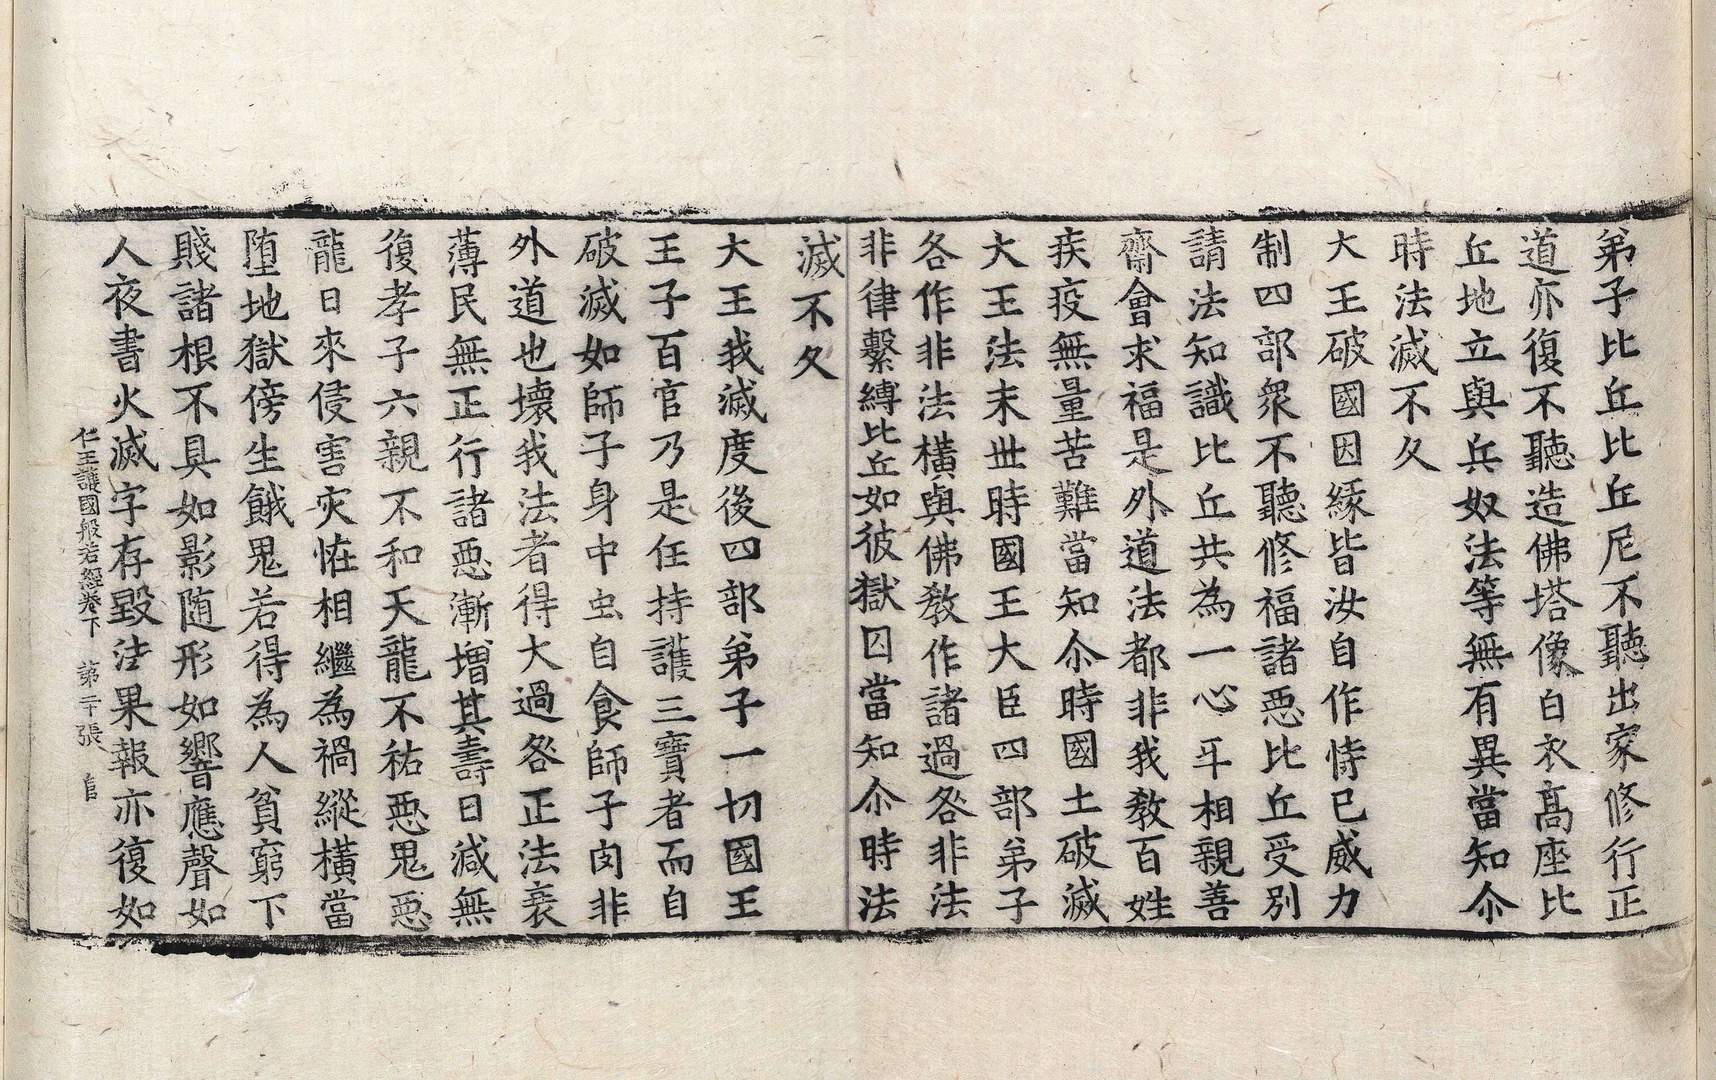 弟子比丘比丘尼不聽出家修行正
道亦復不聽造佛塔像白衣髙座比
丘地立與兵奴法等無有異當知尒
時法滅不久
大王破國因緣皆汝自作恃已威力
制四部眾不聽修福諸惡比丘受別
請法知識比丘共為一心牙相親善
齋會求福是外道法都非我教百姓
疾疫無量苦難當知尒時國土破滅
大王法末世時國王大臣四部弟子
各作非法橫與佛教作諸過咎非法
非律繫縛比丘如彼獄囚當知尒時法
滅不久
大王我滅度後四部弟子一切國王
王子百官乃是任持護三寶者而自
破滅如師子身中虫自食師子肉非
外道也壞我法者得大過咎正法衰
薄民無正行諸惡漸增其壽日減無
復孝子六親不和天龍不祐惡鬼惡
龍日來侵害灾恠相繼為禍縱橫當
堕地獄傍生餓鬼若得為人貧窮下
賤諸根不具如影隨形如響應聲如
人夜書火滅字存毀法果報亦復如
仁王護國般若經卷下　第二十張